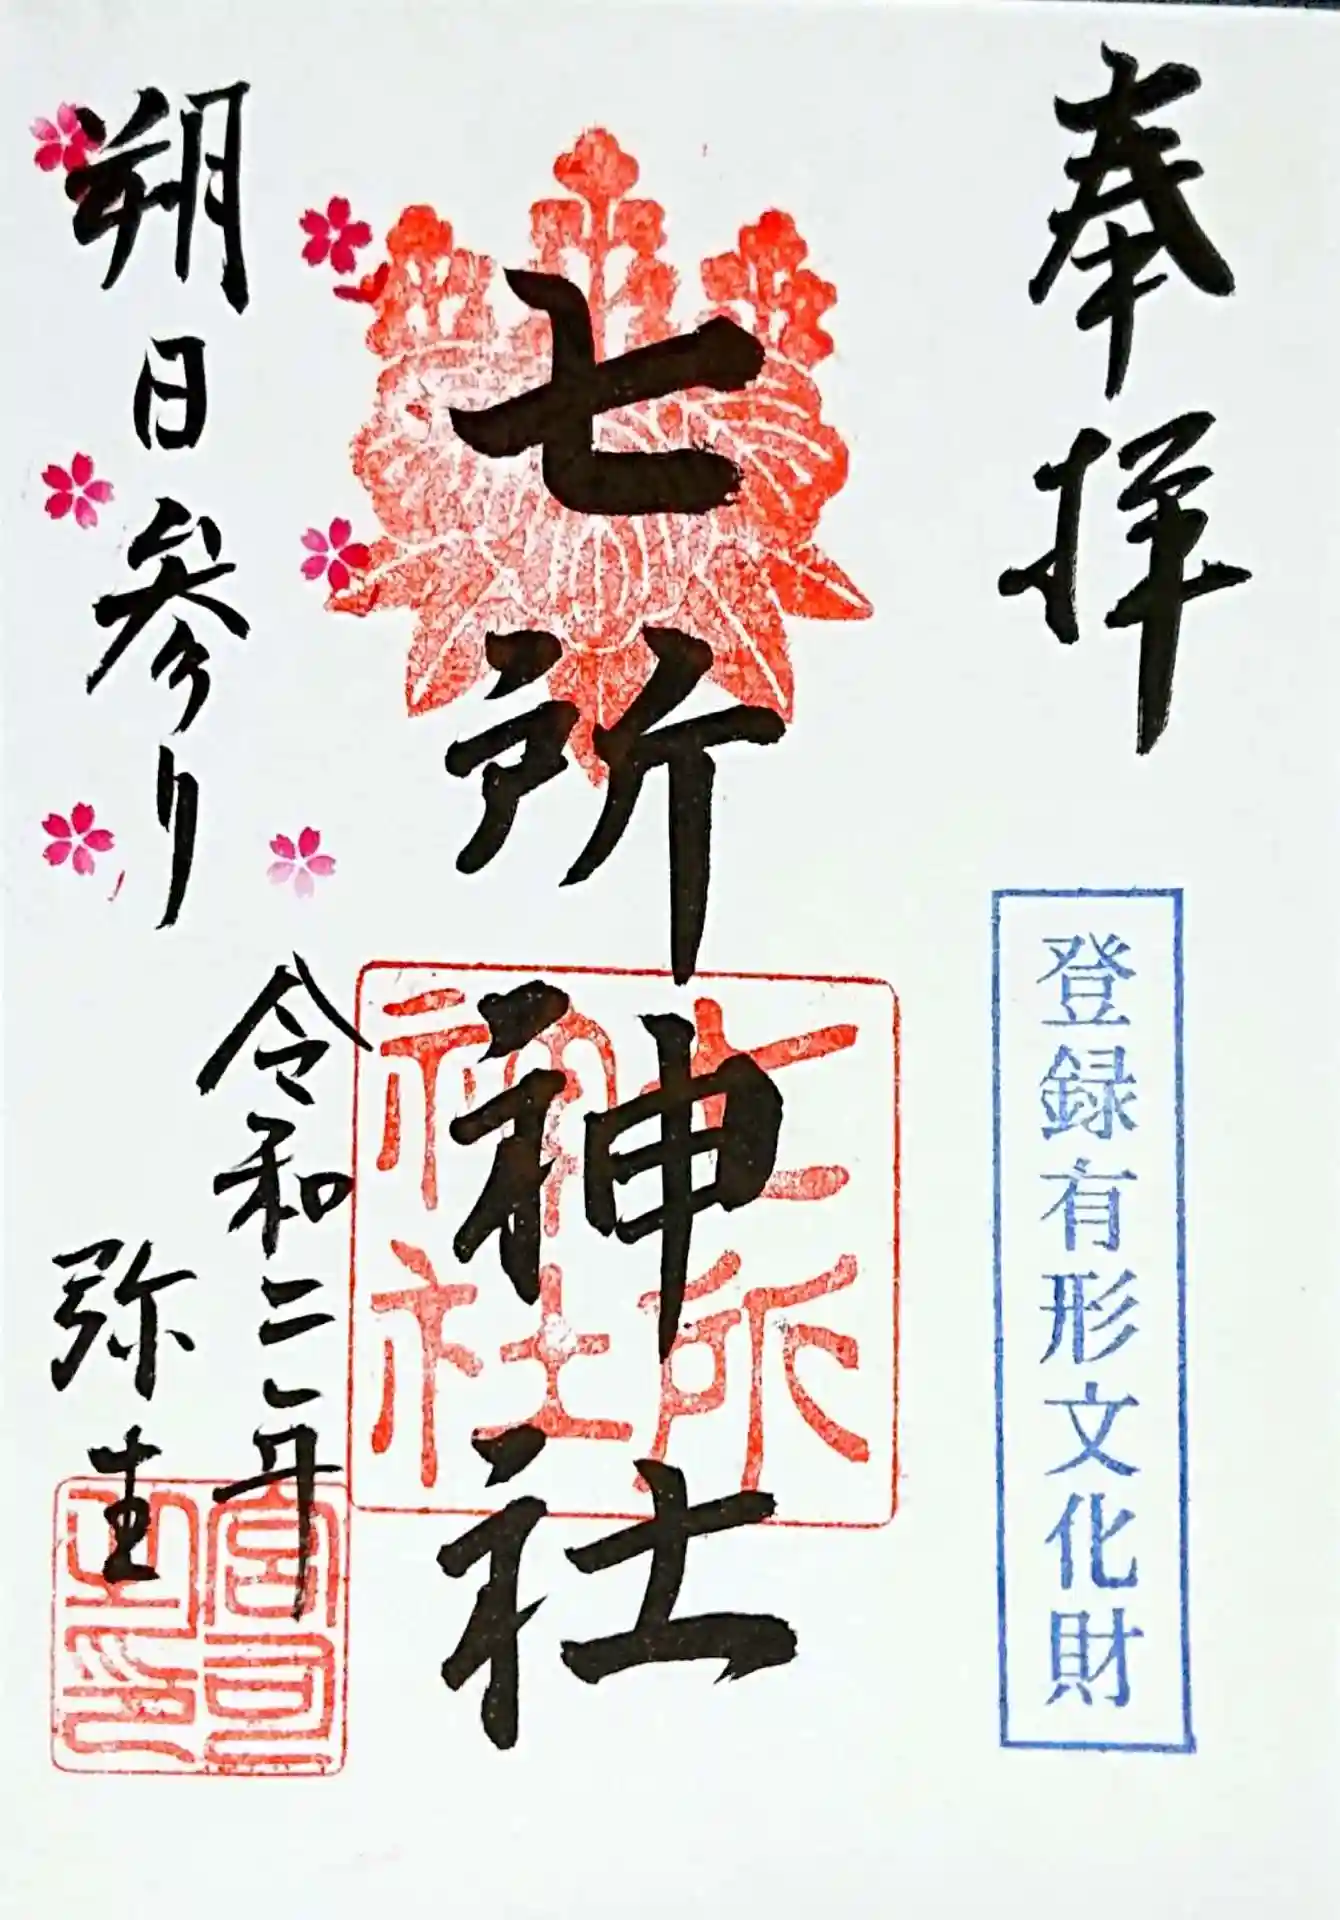 奉拝
登録有形文化財
七所神社
七所
神社
令和二年
弥生
朔日参り
宮司
之印